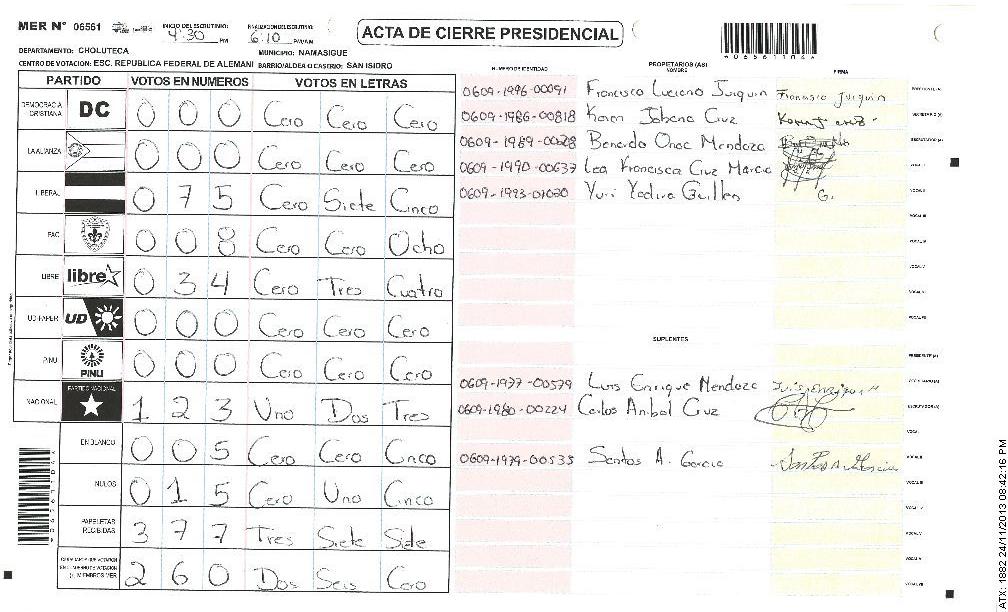 MER N° 06561 INICIO DEL ESCRUTINIO: 4:30 PM FINALIZACION DEL ESCRUTINIO: 6:10 PM/AM
ACTA DE CIERRE PRESIDENCIAL
DEPARTAMENTO: CHOLUTECA MUNICIPIO: NAMASIGUE
CENTRO DE VOTACION: ESC. REPUBLICA FEDERAL DE ALEMANI BARRIO/ALDEA O CASERIO: SAN ISIDRO
PARTIDO VOTOS EN NUMEROS VOTOS EN LETRAS
DEMOCRACIA CRISTIANA DC 0 0 0 Cero Cero Cero
LA ALIANZA 0 0 0 Cero Cero Cero
LIBERAL 0 7 5 Cero Siete Cinco
PAC 0 0 8 Cero Cero Ocho
LIBRE libre 0 3 4 Cero Tres Cuatro
UD-FAPER UD 0 0 0 Cero Cero Cero
PINU PINU 0 0 0 Cero Cero Cero
NACIONAL PARTIDO NACIONAL 1 2 3 Uno Dos Tres
EN BLANCO 0 0 5 Cero Cero Cinco
NULOS 0 1 5 Cero Uno Cinco
PAPELETAS RECIBIDAS 3 7 7 Tres Siete Siete
2 6 0 Dos Seis Cero
NUMERO DE IDENTIDAD PROPIETARIOS (AS) NOMBRE FIRMA
0609-1996-00091 Francisco Luciano Juiquin Francisco Juiquin
0609-1986-00818 Karen Johana Cruz
0609-1989-00028 Mendoza
0609-1990-00637 Lea Francisca Cruz
0609-1993-01020 Yuri Yadira Guillen G.
SUPLENTES
0609-1977-00579 Luis Enrique Mendoza
0609-1980-00224 Carlos Anibal Cruz
0609-1979-00535 Santos A. Garcia
ATX: 1882 24/11/2013 08:42:16 PM